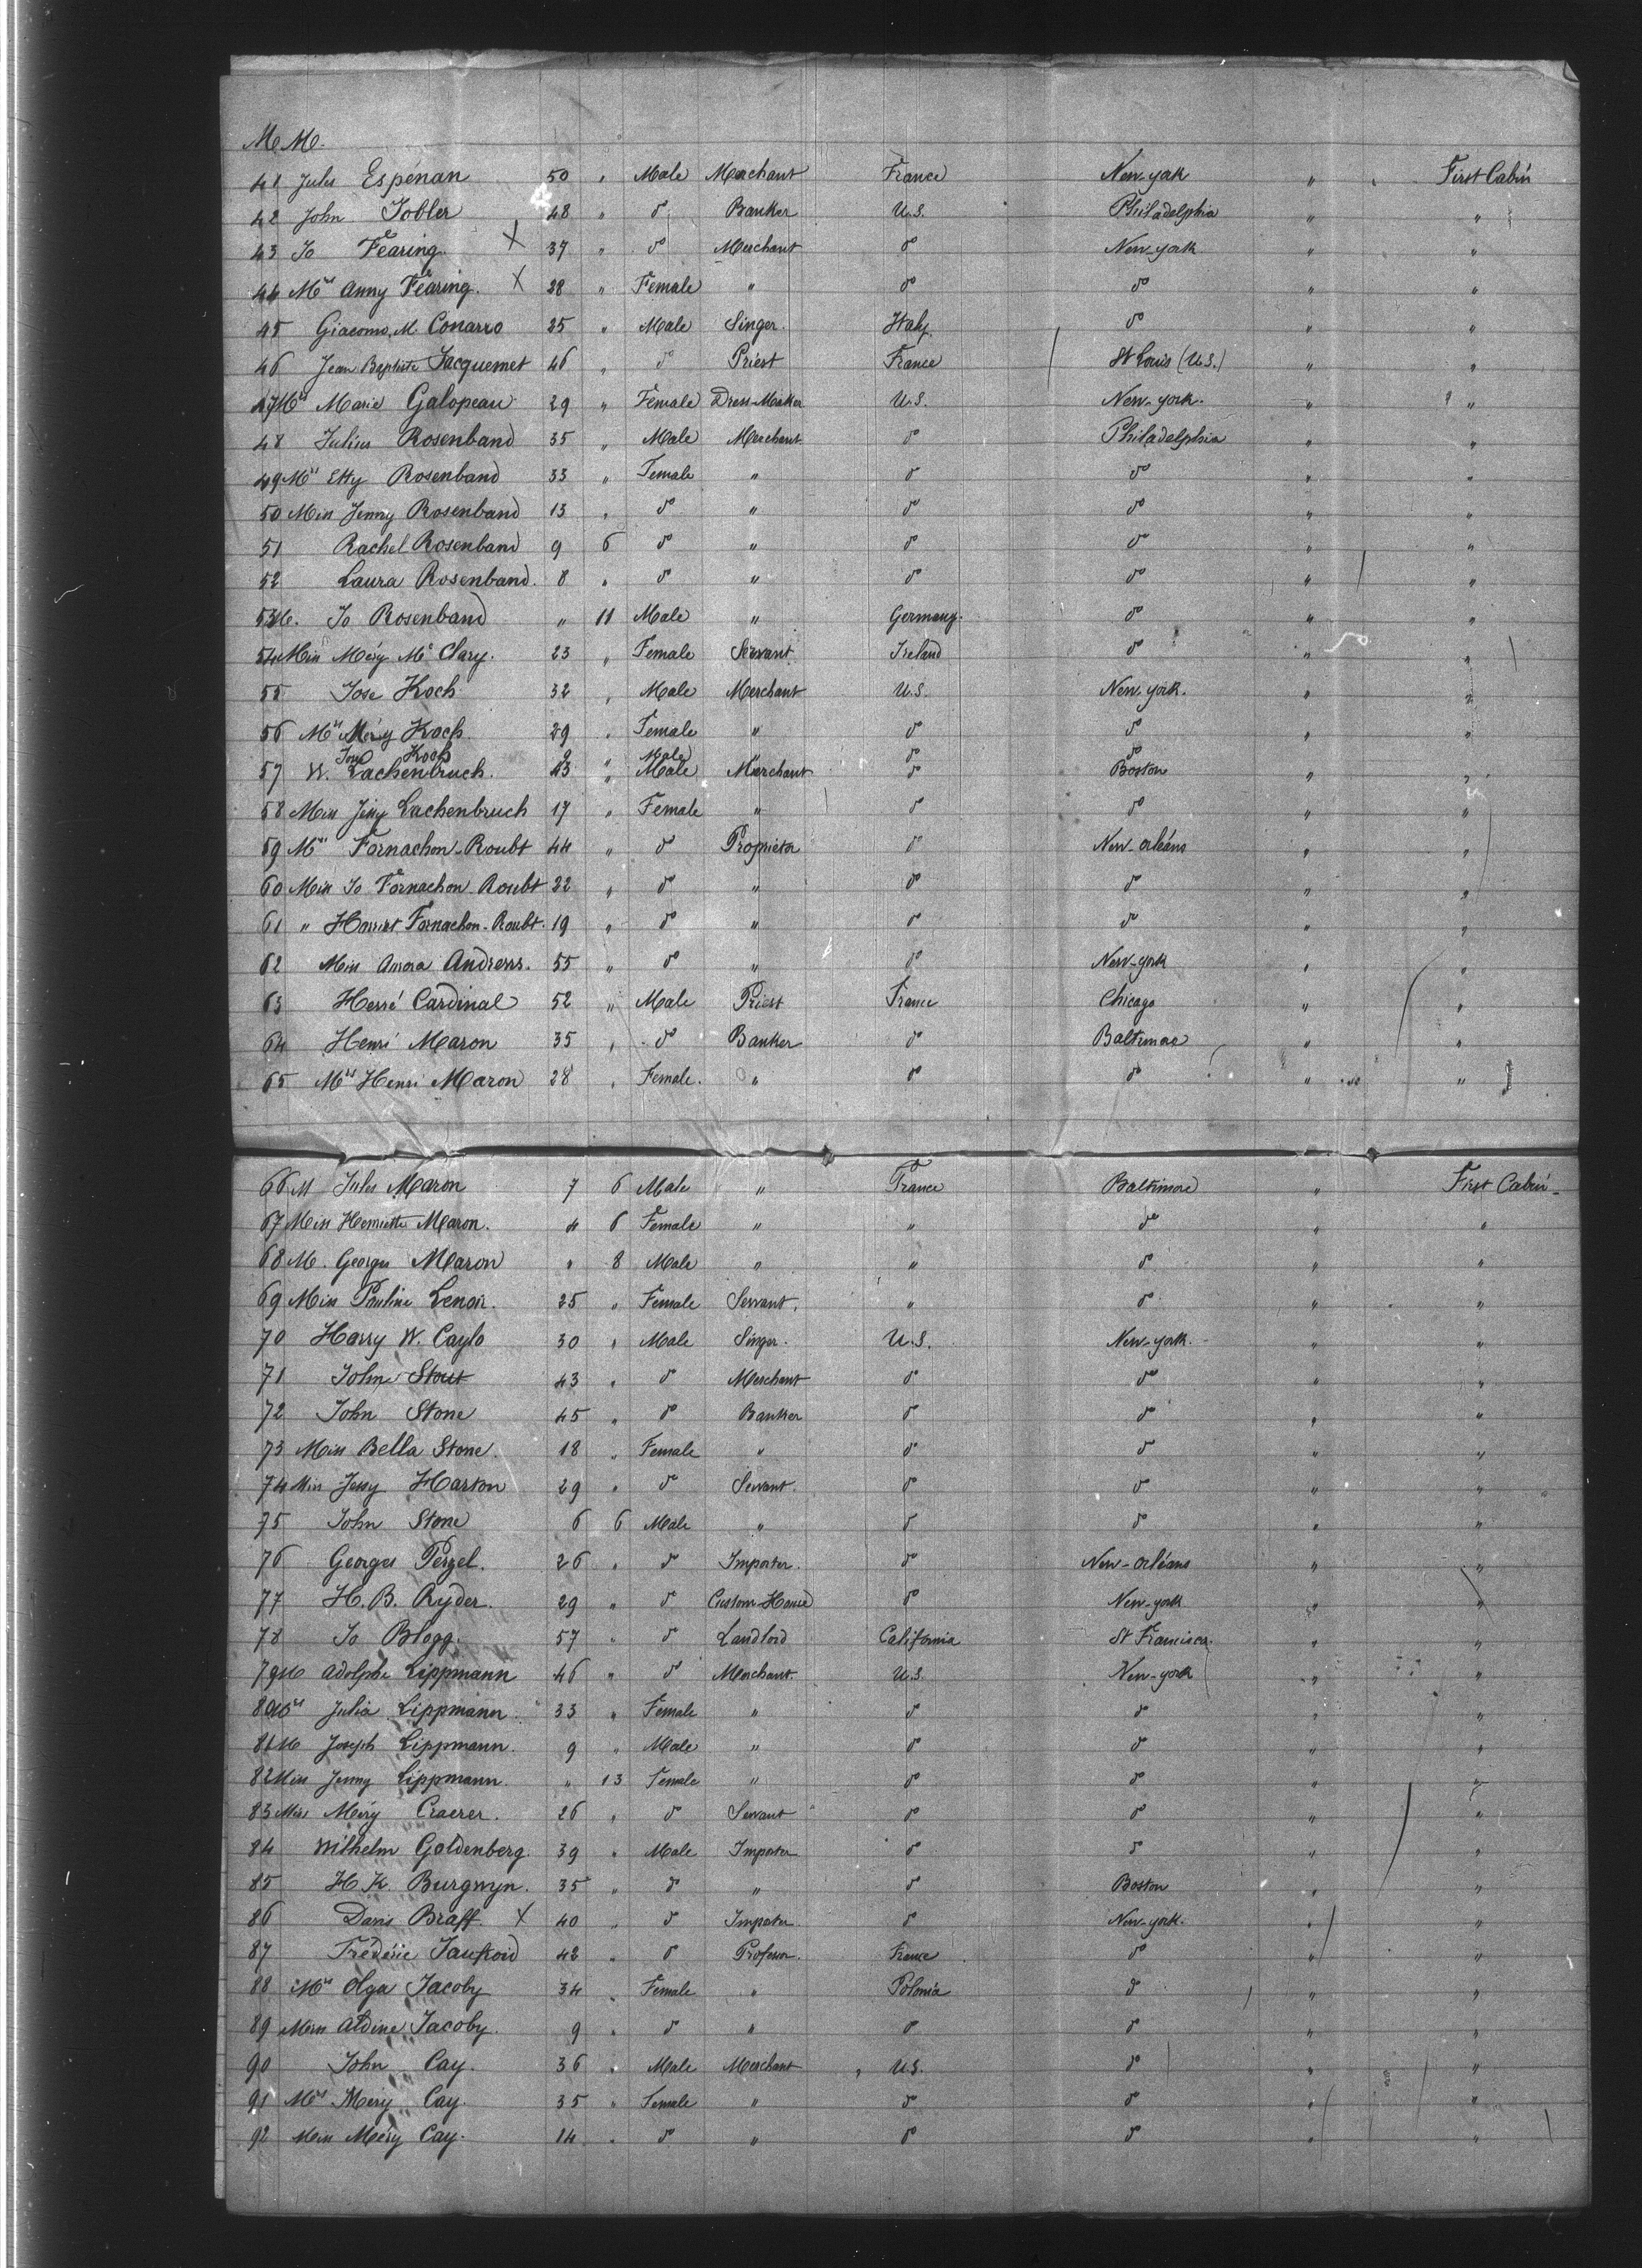 M. M.
41 Jules Espénan 50 " Male Merchant France New-york " First Cabin
42 John Tobler 48 " do Banker U.S. Philadelphia " "
43 Jo Fearing X 37 " do Merchant do New-york " "
44 Mrs Anny Fearing. X 28 " Female " do do " "
45 Giacomo, M. Conarro 25 " Male Singer. Italy. do " "
46 Jean Baptiste Jacquemet 46 " do Priest France St Louis (U.S.) " "
47 Mrs Marie Galopeau 29 " Female Dress-Maker U.S. New-york. " "
48 Julius Rosenband 35 " Male Merchant do Philadelphia " "
49 Mrs Etty Rosenband 33 " Female " do do " "
50 Miss Jenny Rosenband 13 " do " do do " "
51 Rachel Rosenband 9 6 do " do do " "
52 Laura Rosenband. 8 " do " do do " "
53 M. Jo Rosenband " 11 Male " Germany. do " "
54 Miss Méry Mc Clary. 23 " Female Servant Ireland do " "
55 Jose Koch 32 " Male Merchant U.S. New-york. " "
56 Mrs Méry Koch 29 " Female " do do " "
Jose Koch 2 " Male " do do
57 W. Lachenbruch. 43 " Male Merchant do Boston " "
58 Miss Jessy Lachenbruch 17 " Female " do do " "
59 Mrs Fornachon-Roubt 44 " do Proprietor do New-orléans " "
60 Miss Jo Fornachon Roubt 22 " do " do do " "
61 " Harriet Fornachon-Roubt. 19 " do " do do " "
62 Miss Anora Andrews. 55 " do " do New-york " "
63 Herré Cardinal 52 " Male Priest France Chicago " "
64 Henri Maron 35 " do Banker do Baltimore " "
65 Mrs Henri Maron 28 " Female. " do do " "
66 M Jules Maron 7 6 Male " France Baltimore " First Cabin
67 Miss Henriette Maron. 4 6 Female " " do " "
68 M. Georges Maron " 8 Male " " do " "
69 Miss Pauline Lenoir. 25 " Female Servant. " do " "
70 Harry W. Caylo 30 " Male Singer. U.S. New-york. " "
71 John Stout 43 " do Merchant do do " "
72 John Stone 45 " do Banker do do " "
73 Miss Bella Stone. 18 " Female " do do " "
74 Miss Jessy Harton 29 " do Servant. do do " "
75 John Stone 6 6 Male " do do " "
76 Georges Perzel. 26 " do Importer. do New-orléans " "
77 H. B. Ryder. 29 " do Custom-House do New-york " "
78 Jo Blogg. 57 " do Landlord California St Francisco. " "
79 M Adolphe Lippmann 46 " do Merchant. U.S. New-york " "
80 Mrs Julia Lippmann 33 " Female " do do " "
81 M Joseph Lippmann. 9 " Male " do do " "
82 Miss Jenny Lippmann. " 13 Female " do do " "
83 Miss Méry Craerer. 26 " do Servant do do " "
84 Wilhelm Goldenberg. 39 " Male Importer do do " "
85 H K. Burgwyn. 35 " do " do Boston " "
86 Davis Braff. X 40 " do Importer do New-york. " "
87 Frédéric 42 " do Professor. France do " "
88 Mrs Olga Jacoby 34 " Female " Polonia do " "
89 Miss Aldine Jacoby. 9 " do " do do " "
90 John Cay. 36 " Male Merchant U.S. do " "
91 Mrs Méry Cay. 35 " Female " do do " "
92 Miss Méry Cay. 14 " do " do do " "